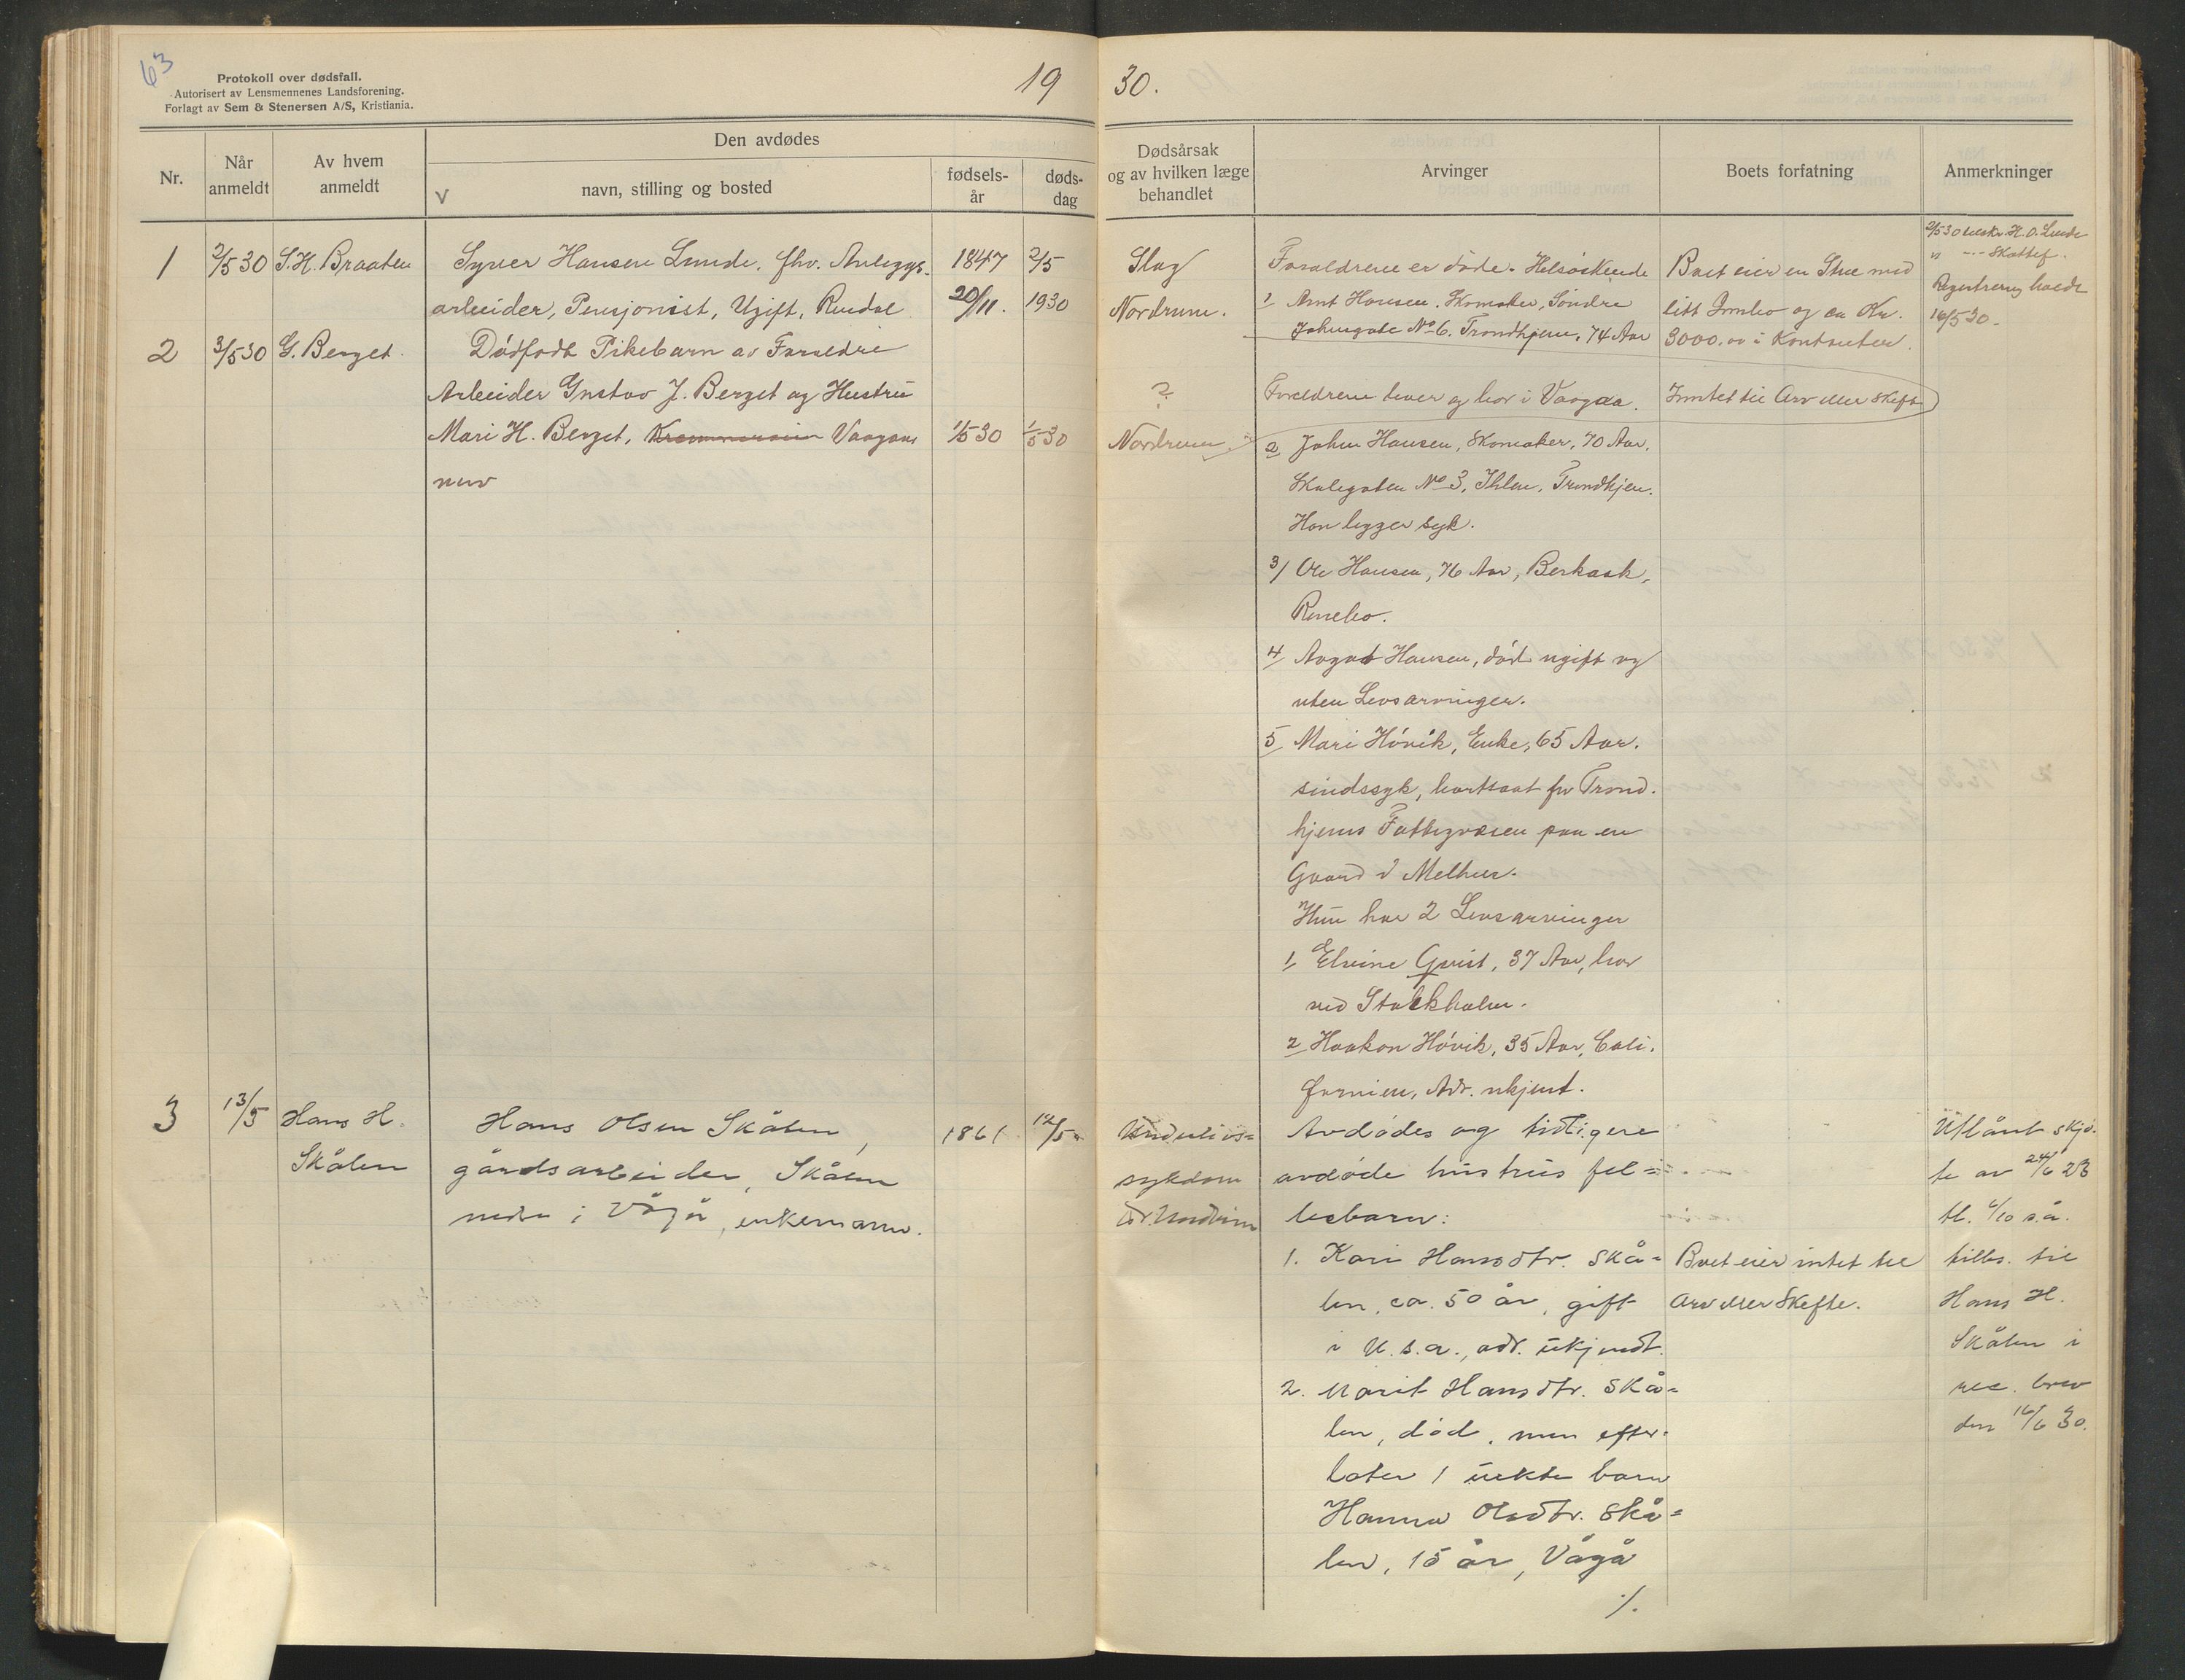 63
Protokoll over dødsfall.
Autorisert av Lensmennenes Landsforening.
Forlagt av Sem & Stenersen A/S, Kristiania.
19 30.
Nr.
Når anmeldt
Av hvem anmeldt
Den avdødes
navn, stilling og bosted
v
fødselsår
dødsdag
Dødsårsak og av hvilken læge behandlet
Arvinger
Boets forfatning
Anmerkninger
1
2/5 30
S. H. Braaten
Syver Hansen Lunde, fhv. Anleggs-
arbeider, Pensjonist, Ugift,
1847
20/11.
2/5
1930
Slag
Nordrum.
Foreldrene er døde. Helsøskende
1 Arnt Hansen. Skomaker, Søndre
No 6. Trondhjem. 74 Aar
Boet eier en Stue med
litt Innbo og ca Kr.
3000.00 i Kontanter.
2/5 30 H. O. Lunde
" - - Skattef.
Registrering holdt
16/5 30.
2
3/5 30
G. Berget.
Dødfødt Pikebarn av Foreldre
Arbeider Gustav J. Berget og Hustru
Mari H. Berget, Vaagaa
1/5 30
1/5 30
?
Nordrum
Foreldrene lever og bor i Vaagaa.
Inntet til Arv eller Skifte
2 Johan Hansen, Skomaker, 70 Aar.
Skolegaten No 3, Ihlen, Trondhjem.
Han ligger syk.
3/ Ole Hansen, 76 Aar, Berkaak,
Rennebo.
4/ August Hansen, død ugift og
uten Livsarvinger.
5/ Mari Høvik, Enke, 65 Aar.
sindssyk, bortsatt for Trond-
hjems Fattigvæsen paa en
Gaard i Melhus.
Hun har 2 Livsarvinger
1/ Elvine Qvist, 37 Aar, bor
ved Stockholm.
2/ Haakon Høvik, 35 Aar, Cali-
fornien, Adr. ukjent.
3
13/5
Hans H.
Skålen
Hans Olsen Skålen,
gårdsarbeider, Skålen
nedre i Vågå, enkemann.
1861
12/5
sykdom
Avdødes og tidligere
avdøde hustrus fel=
lesbarn:
1. Kari Hansdtr. Skå=
len, ca. 50 år, gift
i U.s.a., adr. ukjendt.
2. Marit Hansdtr. Skå=
len, død, men efter-
later 1 uekte barn
Hanna Olsdtr. Skå=
len, 15 år, Vågå
./.
Boet eier intet til
Arv eller Skifte.
Utlånt skjø-
te av 24/6 23
tl. 6/10 s.å.
tilbs. til
Hans H.
Skålen i
rec. brev
den 16/6 30.